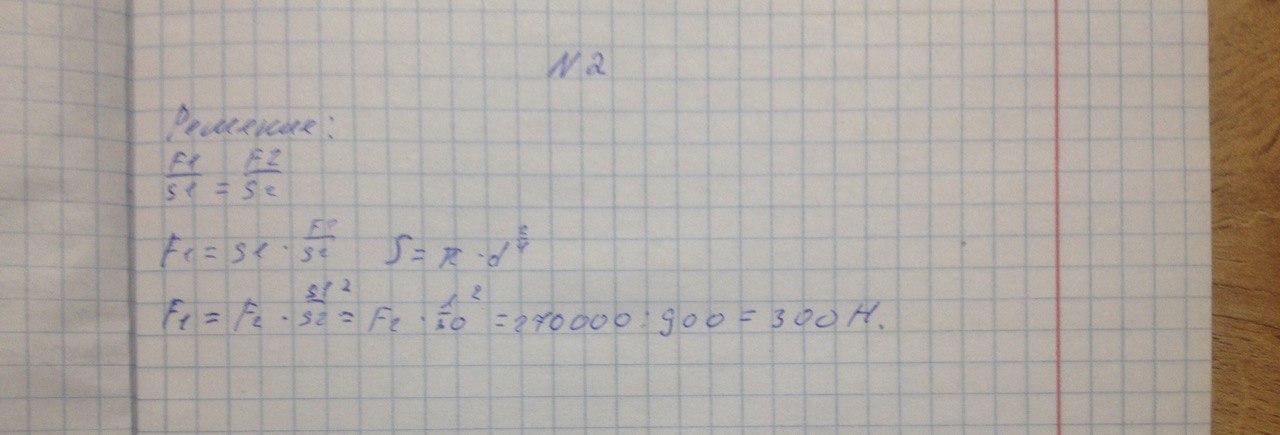 N 2
Решение:
F1/S1 = F2/S2
F1 = S1 · F2/S2 S = π · d^2/4
F1 = F2 · S1/S2^2 = F2 · 1/30^2 = 270000 : 900 = 300 Н.